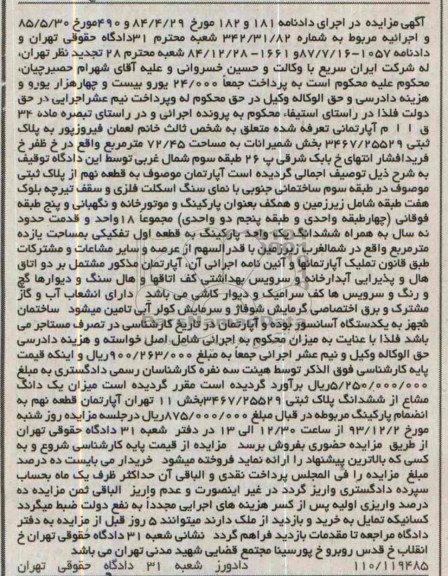 آگهی مزایده در اجرای دادنامه ۱۸۱ و ۱۸۲ مورخ ۸۴/۴/۲۹ و ۴۹۰مورخ ۸۵/۵/۳۰
و اجرائیه مربوط به شماره ۳۴۲/۳۱/۸۲ شعبه محترم ۳۱دادگاه حقوقی تهران و
دادنامه ۱۰۵۷-۸۷/۷/۱۶و ۱۶۶۱-۸۴/۱۲/۲۸ شعبه محترم ۲۸ تجدید نظر تهران،
له شرکت ایران سریع با وکالت و حسین خسروانی و علیه آقای شهرام حصیرچیان،
محکوم علیه محکوم است به پرداخت جمعا ۲۴/۰۰۰ یورو بیست و چهارهزار یورو و
هزینه دادرسی و حق الوکاله وکیل در حق محکوم له وپرداخت نیم عشراجرایی در حق
دولت فلذا در راستای استیفاء محکوم به پرونده اجرائی و در راستای تبصره ماده ۳۴
ق ا ا م آپارتمانی تعرفه شده متعلق به شخص ثالث خانم لعمان فیروزپور به پلاک
ثبتی ۳۴۶۷/۲۵۵۲۹ بخش شمیرانات به مساحت ۷۲/۴۵ مترمربع واقع در خ ظفر خ
فریدافشار انتهای خ بابک شرقی پ ۲۶ طبقه سوم شمال غربی توسط این دادگاه توقیف
به شرح ذیل توصیف اجمالی گردیده است آپارتمان موصوف به قطعه نهم از پلاک ثبتی
موصوف در طبقه سوم ساختمانی جنوبی با نمای سنگ اسکلت فلزی و سقف تیرچه بلوک
هفت طبقه شامل زیرزمین و همکف بعنوان پارکینگ و موتورخانه و نگهبانی و پنج طبقه
فوقانی (چهارطبقه واحدی و طبقه پنجم دو واحدی) مجموعا ۱۸واحد و قدمت حدود
نه سال به همراه ششدانگ یک واحد پارکینگ به قطعه اول تفکیکی بمساحت یازده
مترمربع واقع در شمالغرب زیرزمین با قدرالسهم از عرصه و سایر مشاعات و مشترکات
طبق قانون تملیک آپارتمانها و آئین نامه اجرائی آن، آپارتمان مذکور مشتمل بر دو اتاق
هال و پذیرایی آبدارخانه و سرویس بهداشتی کف اتاقها و هال سنگ و دیوارها گچ
و رنگ و سرویس ها کف سرامیک و دیوار کاشی می باشد دارای انشعاب آب و گاز
مشترک و برق اختصاصی گرمایش شوفاژ و سرمایش کولر آبی تامین میشود ساختمان
مجهز به یکدستگاه آسانسور بوده و آپارتمان در تاریخ کارشناسی در تصرف مستاجر می
باشد فلذا با عنایت به میزان محکوم به اجرائی شامل اصل خواسته و هزینه دادرسی
حق الوکاله وکیل و نیم عشر اجرائی جمعا به مبلغ ۹۰۰/۲۶۳/۰۰۰ریال و اینکه قیمت
پایه کارشناسی فوق الذکر توسط هیئت سه نفره کارشناسان رسمی دادگستری به مبلغ
۵/۲۵۰/۰۰۰/۰۰۰ریال برآورد گردیده است مقرر گردیده است میزان یک دانگ
مشاع از ششدانگ پلاک ثبتی ۳۴۶۷/۲۵۵۲۹بخش ۱۱ تهران آپارتمان قطعه نهم به
انضمام پارکینگ مربوطه در قبال مبلغ ۸۷۵/۰۰۰/۰۰۰ریال درجلسه مزایده روز شنبه
مورخ ۹۳/۱۲/۲ از ساعت ۱۲/۳۰ الی ۱۳ در دفتر شعبه ۳۱ دادگاه حقوقی تهران
از طریق مزایده حضوری بفروش برسد مزایده از قیمت پایه کارشناسی شروع و به
کسی که بالاترین پیشنهاد را ارائه نماید فروخته میشود خریدار می بایست ده درصد
مبلغ مزایده را فی المجلس پرداخت نقدی و الباقی آن حداکثر ظرف یک ماه بحساب
سپرده دادگستری واریز گردد در غیر اینصورت و عدم واریز الباقی ثمن مزایده ده
درصد واریزی اولیه پس از کسر هزینه های اجرایی مجددا به نفع دولت ضبط میگردد
کسانیکه تمایل به خرید و بازدید از ملک دارند میتوانند ۵ روز قبل از مزایده به دفتر
دادگاه مراجعه تا مقدمات بازدید فراهم گردد نشانی شعبه ۳۱ دادگاه حقوقی تهران خ
انقلاب خ قدس روبرو خ پورسینا مجتمع قضایی شهید مدنی تهران می باشد
۱۱۰/۱۱۹۴۸۵ دادورز شعبه ۳۱ دادگاه حقوقی تهران